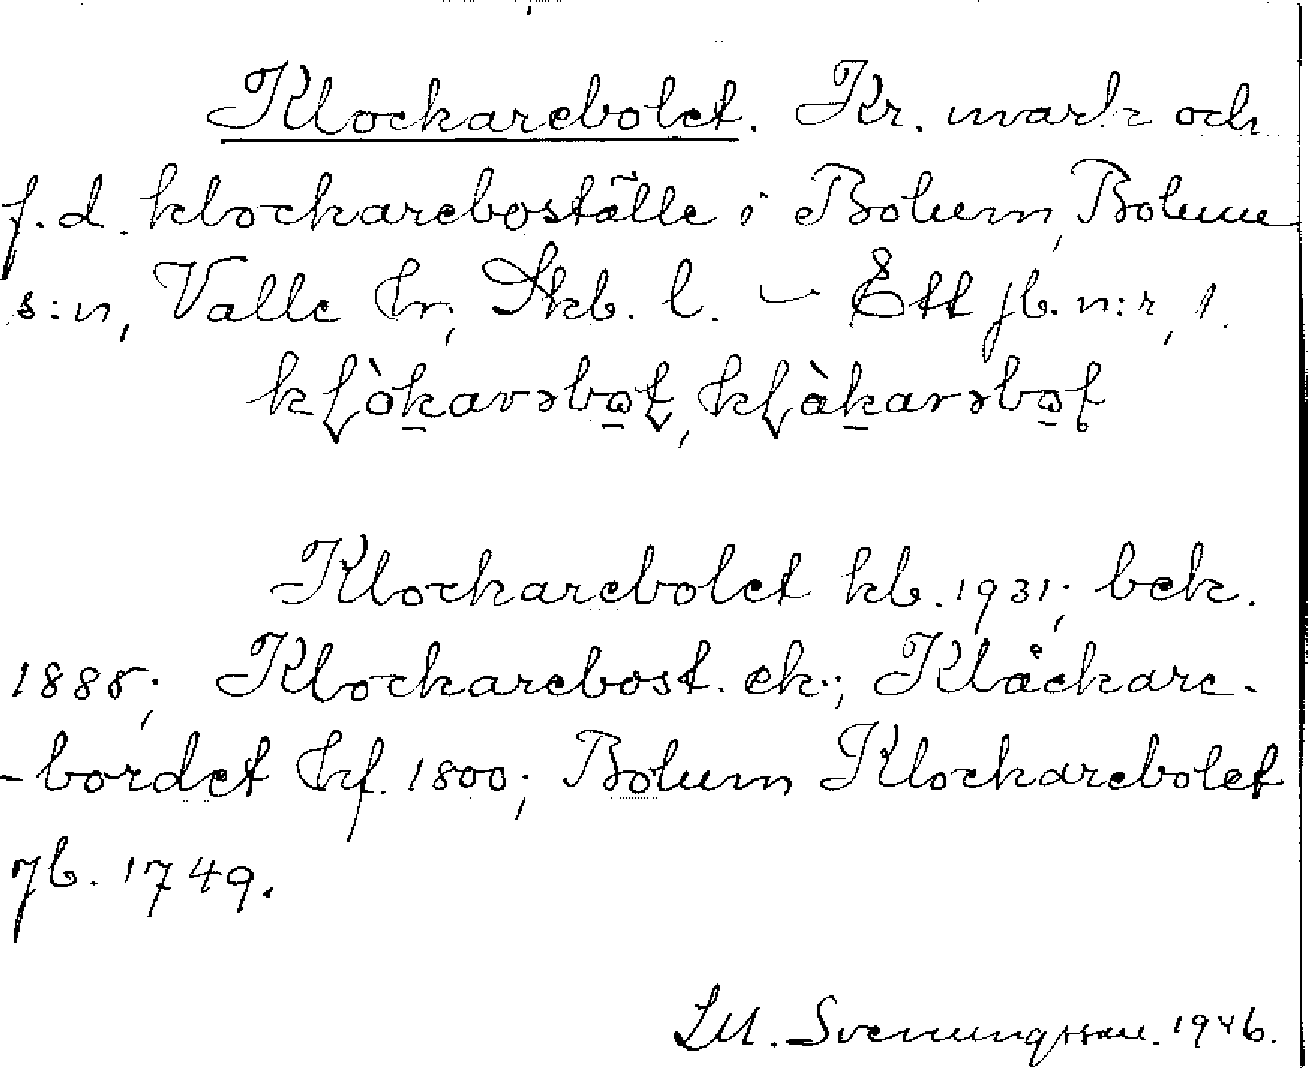 Klockarebolet. Kr. mark och
f.d. klockareboställe i Bolum, Bolums
s:n, Valle hr, Skb. l. – Ett jb. n:r, 1.
Klockarebolet kb. 1931; bek.
1885; Klockarebost. ek.; Klåckare-
-bordet hf. 1800; Bolum Klockarebolet
jb. 1749.
Lll. Svenungsson. 1946.